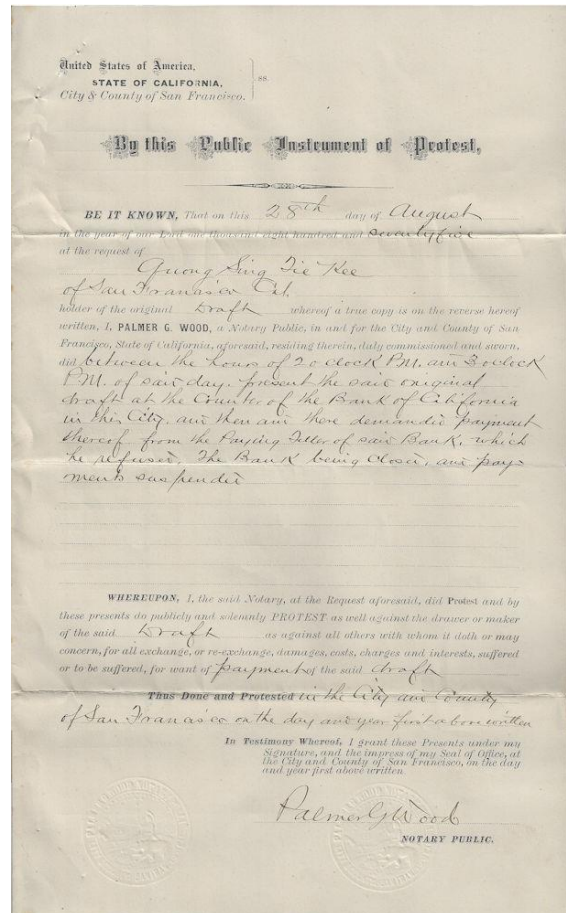 United States of America,
STATE OF CALIFORNIA,
City & County of San Francisco.
ss.
By this Public Instrument of Protest,
BE IT KNOWN, That on this 28th day of August
in the year of our Lord one thousand eight hundred and seventyfive
at the request of
Quong Sing Tie Kee
of San Francisco Cal.
holder of the original Draft whereof a true copy is on the reverse hereof
written, I, PALMER G. WOOD, a Notary Public, in and for the City and County of San
Francisco, State of California, aforesaid, residing therein, duly commissioned and sworn,
did between the hours of 2 oclock P.M. and 3 oclock
P.M. of said day. present the said original
draft at the Counter of the Bank of California
in this City, and then and there demanded payment
thereof from the Paying Teller of said Bank, which
he refused. The Bank being Closed, and pay-
ments suspended
WHEREUPON, I, the said Notary, at the Request aforesaid, did Protest and by
these presents do publicly and solemnly PROTEST as well against the drawer or maker
of the said Draft as against all others with whom it doth or may
concern, for all exchange, or re-exchange, damages, costs, charges and interests, suffered
or to be suffered, for want of payment of the said draft
Thus Done and Protested in the City and County
of San Francisco on the day and year first above written
In Testimony Whereof, I grant these Presents under my
Signature, and the impress of my Seal of Office, at
the City and County of San Francisco, on the day
and year first above written.
Palmer G Wood
NOTARY PUBLIC.